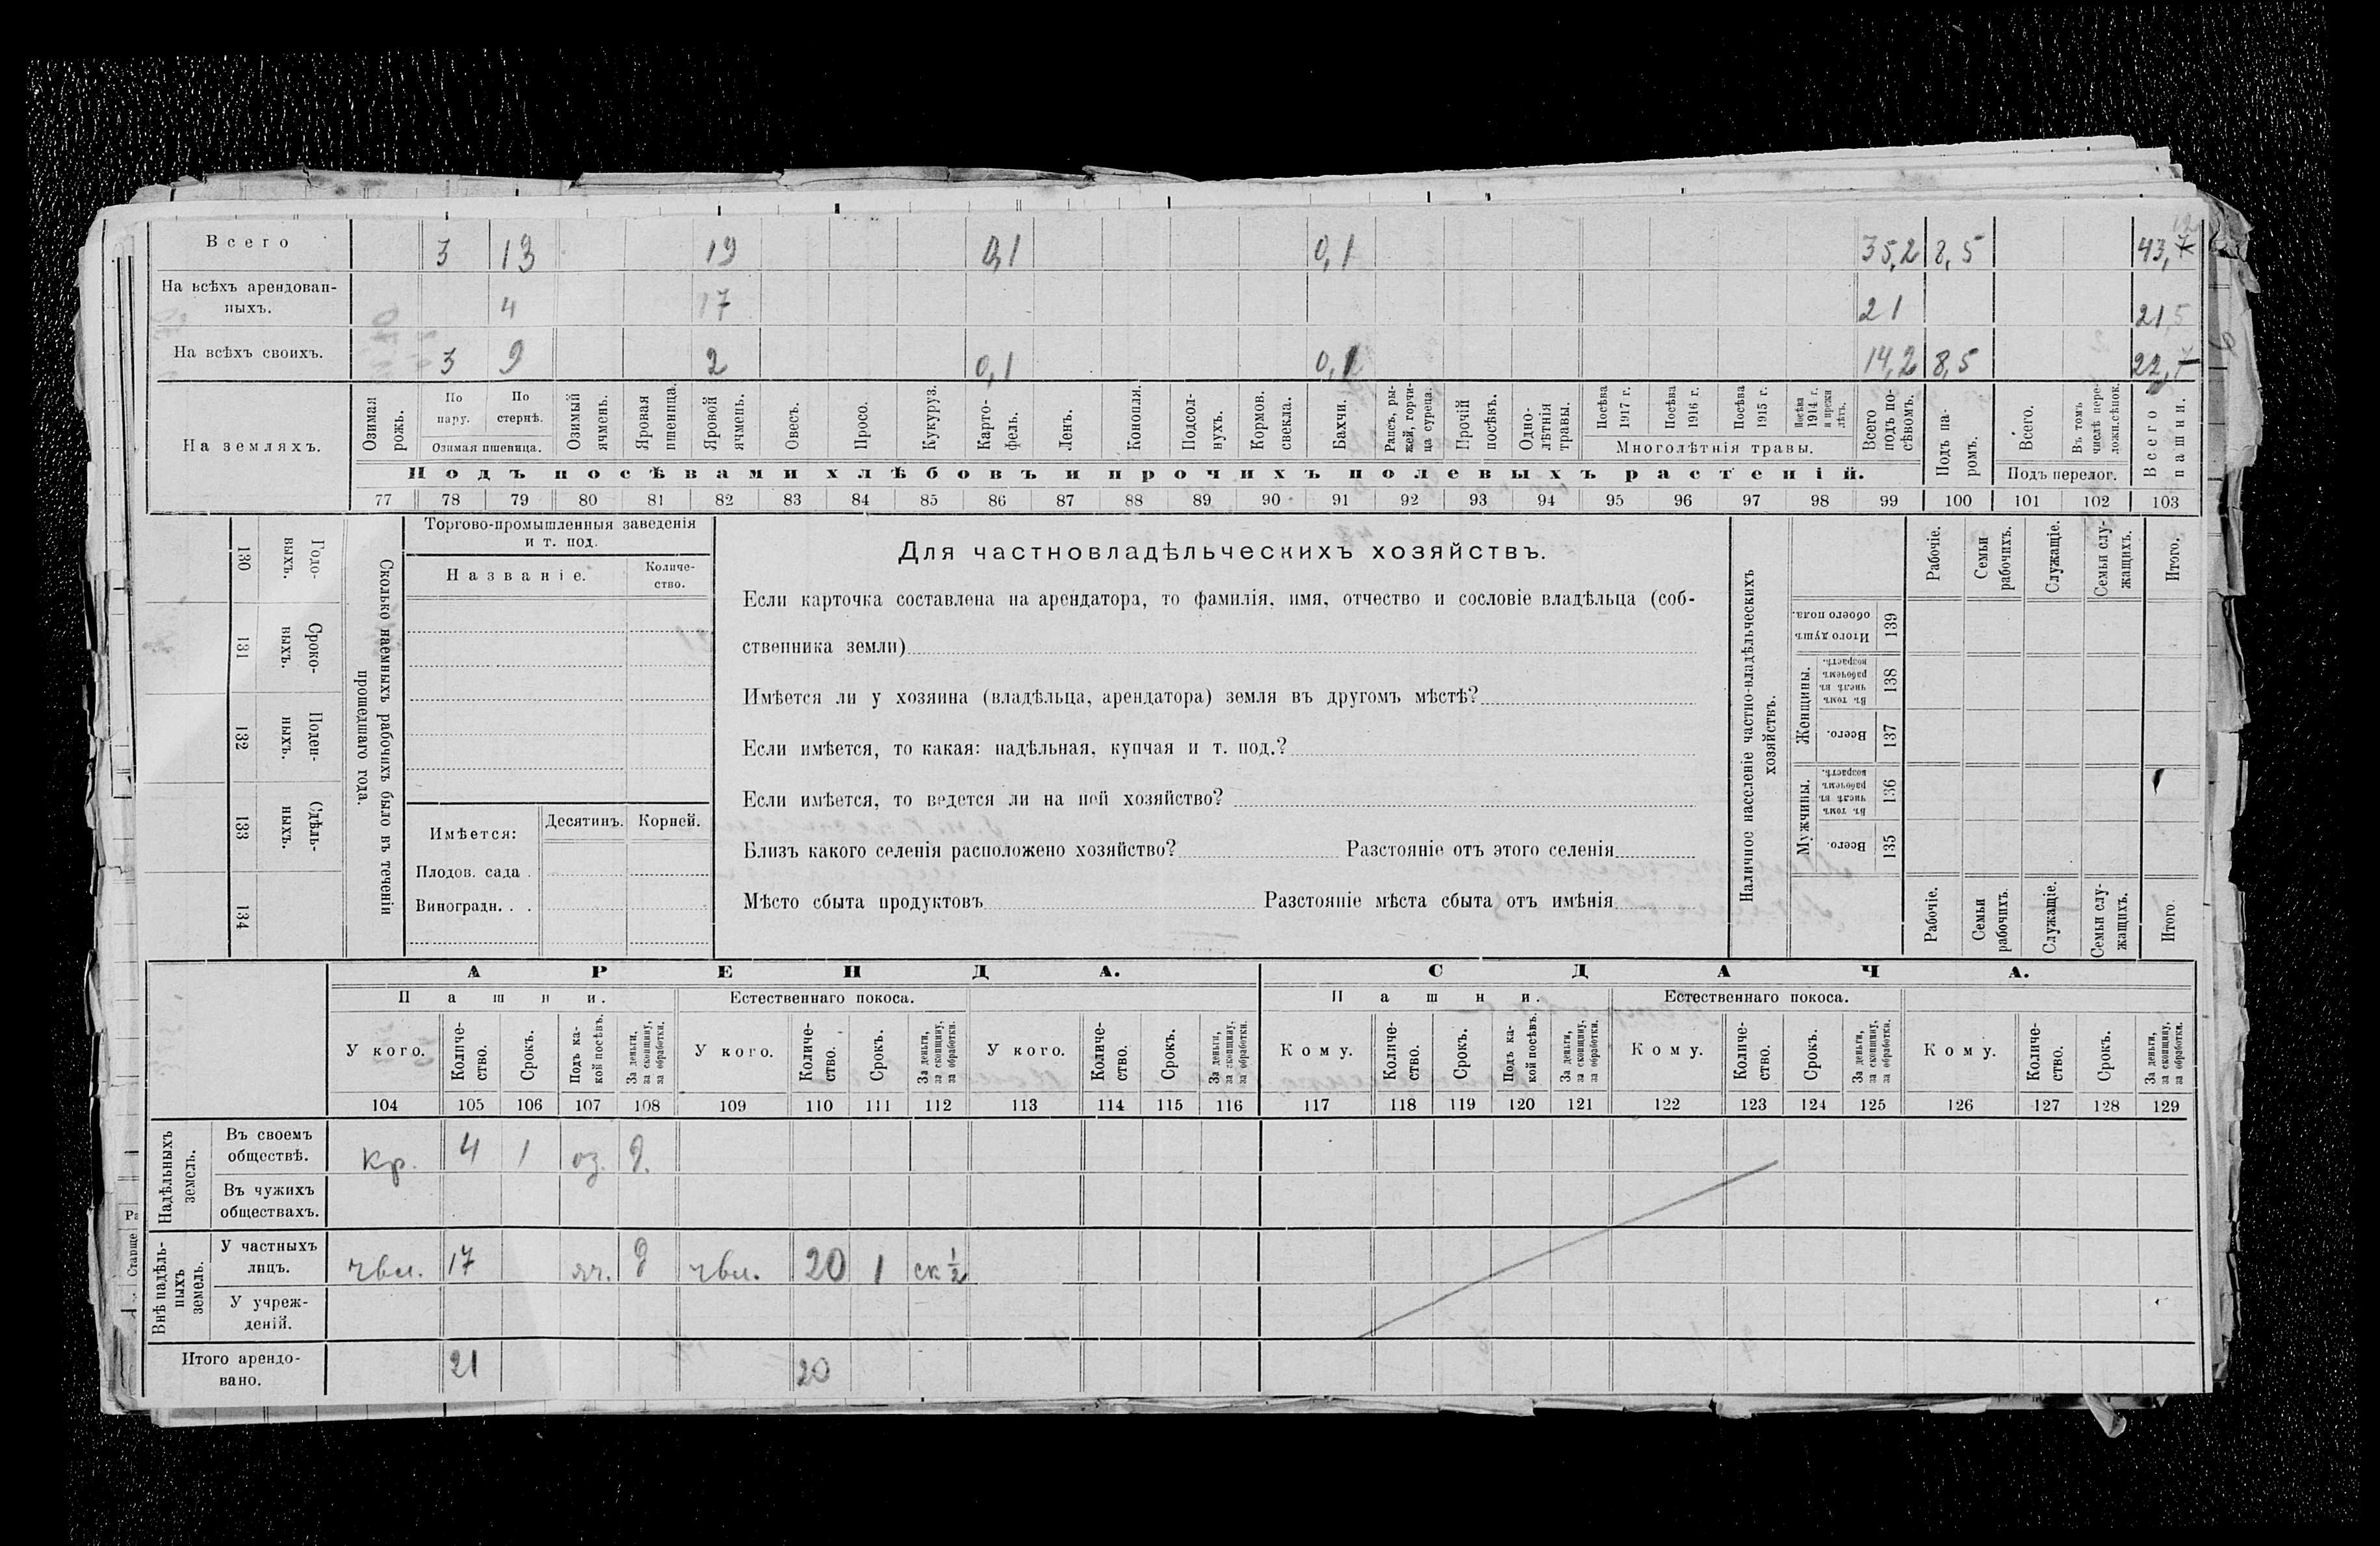 Всего 3 13 19 0,1 0,1 35,2 8,5 43,7
На всѣхъ арендован-
ныхъ. 4 17 21 21
На всѣхъ своихъ. 3 9 2 0,1 0,1 14,2 8,5 22,7
На земляхъ.
Озимая рожь.
По пару.
По стернѣ.
Озимая пшеница.
Озимый ячмень.
Яровая пшеница.
Яровой ячмень.
Овесъ.
Просо.
Кукуруз.
Карто-
фель.
Ленъ.
Конопля.
Подсол-
нухъ.
Кормов. свекла.
Бахчи.
Рапсъ, ры-
жей, горчи-
ца сурепа.
Прочій посѣвъ.
Одно-
лѣтнія травы.
Посѣва 1917 г.
Посѣва 1916 г.
Посѣва 1915 г.
Посѣва 1914 г. и прежн лѣтъ.
Многолѣтнія травы.
Всего подъ по-
сѣвомъ.
Подъ па-
ромъ.
Всего.
Въ томъ числѣ пере-
ложн.сѣнок.
Подъ перелог.
Всего пашни.
Подъ посѣвами хлѣбовъ и прочихъ полевыхъ растеній.
77 78 79 80 81 82 83 84 85 86 87 88 89 90 91 92 93 94 95 96 97 98 99 100 101 102 103
130 Годо-
выхъ.
131 Сроко-
выхъ.
132 Поден-
ныхъ.
133 Сдѣль-
ныхъ.
134
Сколько наемныхъ рабочихъ было въ теченіи
прошедшаго года.
Торгово-промышленныя заведенія
и т. под.
Названіе. Количе-
ство.
Имѣется: Десятинъ. Корней.
Плодов. сада .
Виноградн. . .
Для частновладѣльческихъ хозяйствъ.
Если карточка составлена на арендатора, то фамилія, имя, отчество и сословіе владѣльца (соб-
ственника земли)
Имѣется ли у хозяина (владѣльца, арендатора) земля въ другомъ мѣстѣ?
Если имѣется, то какая: надѣльная, купчая и т. под.?
Если имѣется, то ведется ли на ней хозяйство?
Близъ какого селенія расположено хозяйство? Разстояніе отъ этого селенія
Мѣсто сбыта продуктовъ Разстояніе мѣста сбыта отъ имѣнія
Наличное населеніе частно-владѣльческихъ
хозяйствъ.
Рабочіе.
Семьи рабочихъ.
Служащіе.
Семьи слу-
жащихъ.
Итого.
Итого душъ обоего пола. 139
Женщины.
Въ томъ числѣ въ рабочемъ возрастѣ. 138
Всего. 137
Мужчины.
Въ томъ числѣ въ рабочемъ возрастѣ. 136
Всего. 135
Рабочіе.
Семьи рабочихъ.
Служащіе.
Семьи слу-
жащихъ.
Итого.
АРЕНДА. СДАЧА.
Пашни. Естественнаго покоса. Пашни. Естественнаго покоса.
У кого.
Количе-
ство.
Срокъ.
Подъ ка-
кой посѣвъ.
За деньги, за скопщину, за обработки.
У кого.
Количе-
ство.
Срокъ.
За деньги, за скопщину, за обработки.
У кого.
Количе-
ство.
Срокъ.
За деньги, за скопщину, за обработки.
Кому.
Количе-
ство.
Срокъ.
Подъ ка-
кой посѣвъ.
За деньги, за скопщину, за обработки.
Кому.
Количе-
ство.
Срокъ.
За деньги, за скопщину, за обработки.
Кому.
Количе-
ство.
Срокъ.
За деньги, за скопщину, за обработки.
104 105 106 107 108 109 110 111 112 113 114 115 116 117 118 119 120 121 122 123 124 125 126 127 128 129
Надѣльныхъ
земель.
Въ своемъ
обществѣ. кр. 4 1 оз. д.
Въ чужихъ
обществахъ.
Внѣ надѣль-
ныхъ
земель.
У частныхъ
лицъ. чвл. 17 яч. д чвл. 20 1 ск ½
У учреж-
деній.
Итого арендо-
вано. 21 20